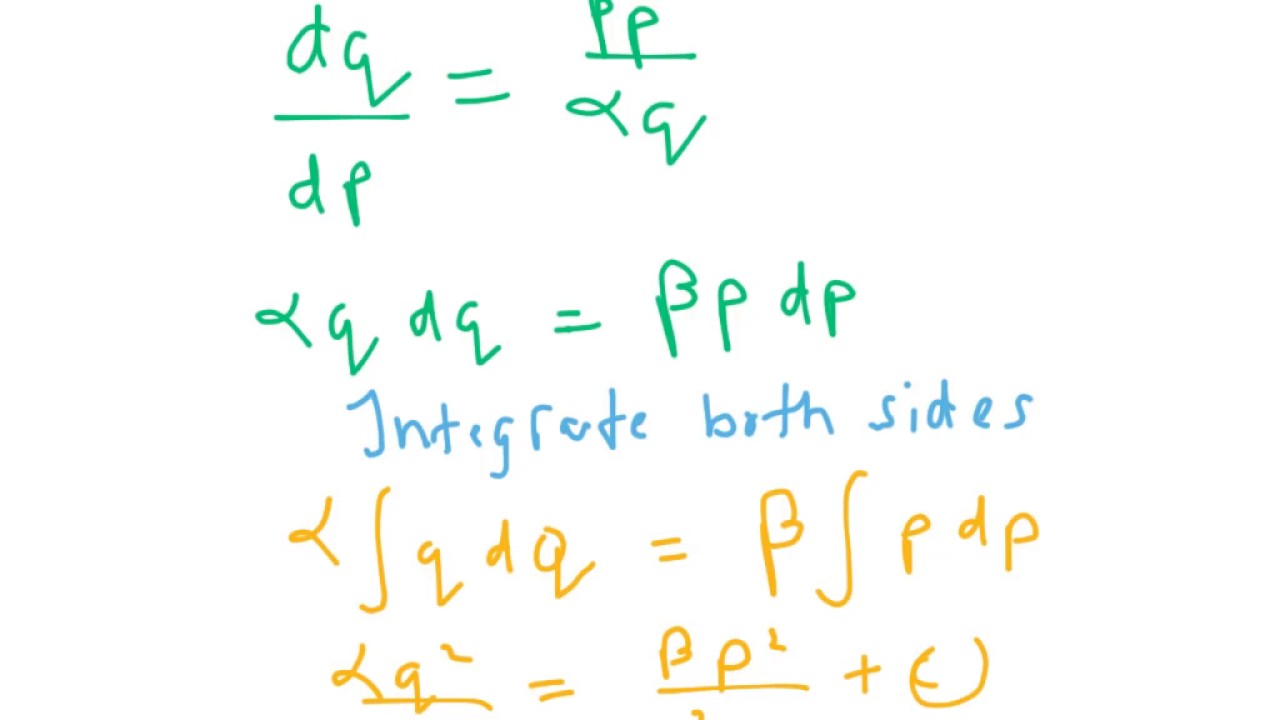 dq/dp = βp/αq
αq dq = βp dp
Integrate both sides
α∫q dq = β∫p dp
αq² = βp² +